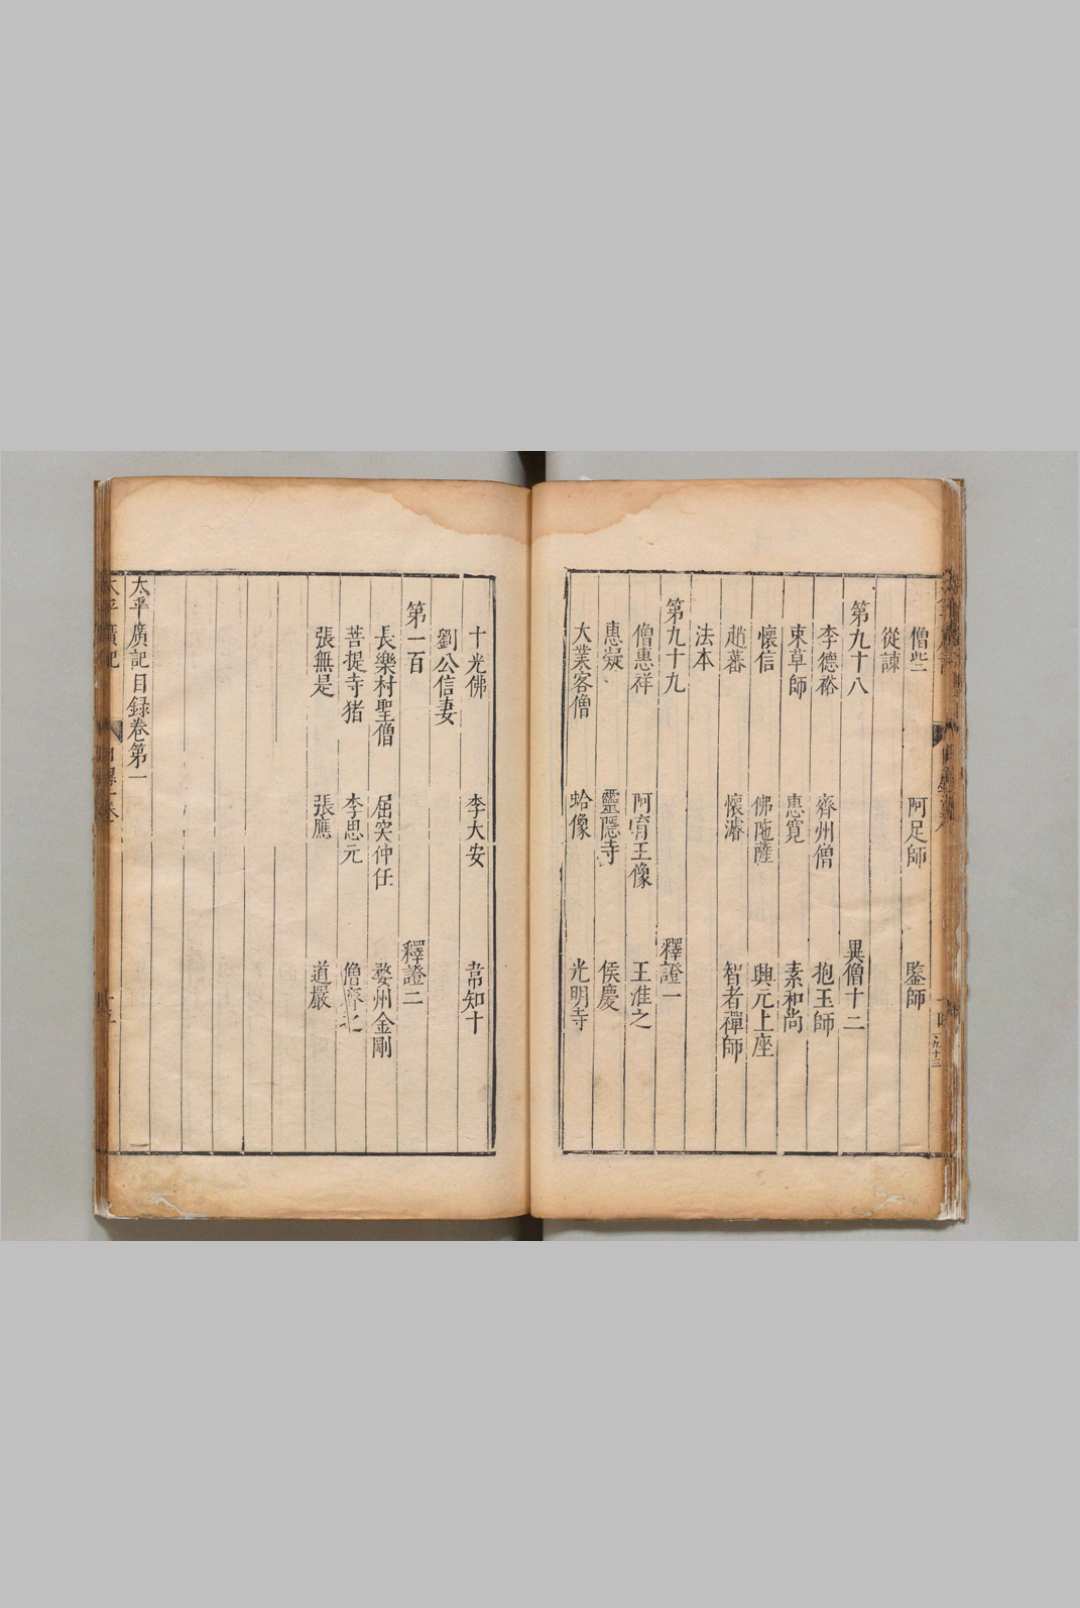 僧些 阿足師 鑒師
從諫
第九十八 異僧十二
李德裕 齊州僧 抱玉師
束草師 惠寬 素和尚
懷信 佛陁薩 興元上座
趙蕃 懷濬 智者禪師
法本
第九十九 釋證一
僧惠祥 阿育王像 王淮之
惠凝 靈隱寺 侯慶
大業客僧 蛤像 光明寺
十光佛 李大安 韋知十
劉公信妻
第一百 釋證二
長樂村聖僧 屈突仲任 婺州金剛
菩提寺猪 李思元 僧齊之
張無是 張應 道嚴
太平廣記目録卷第一